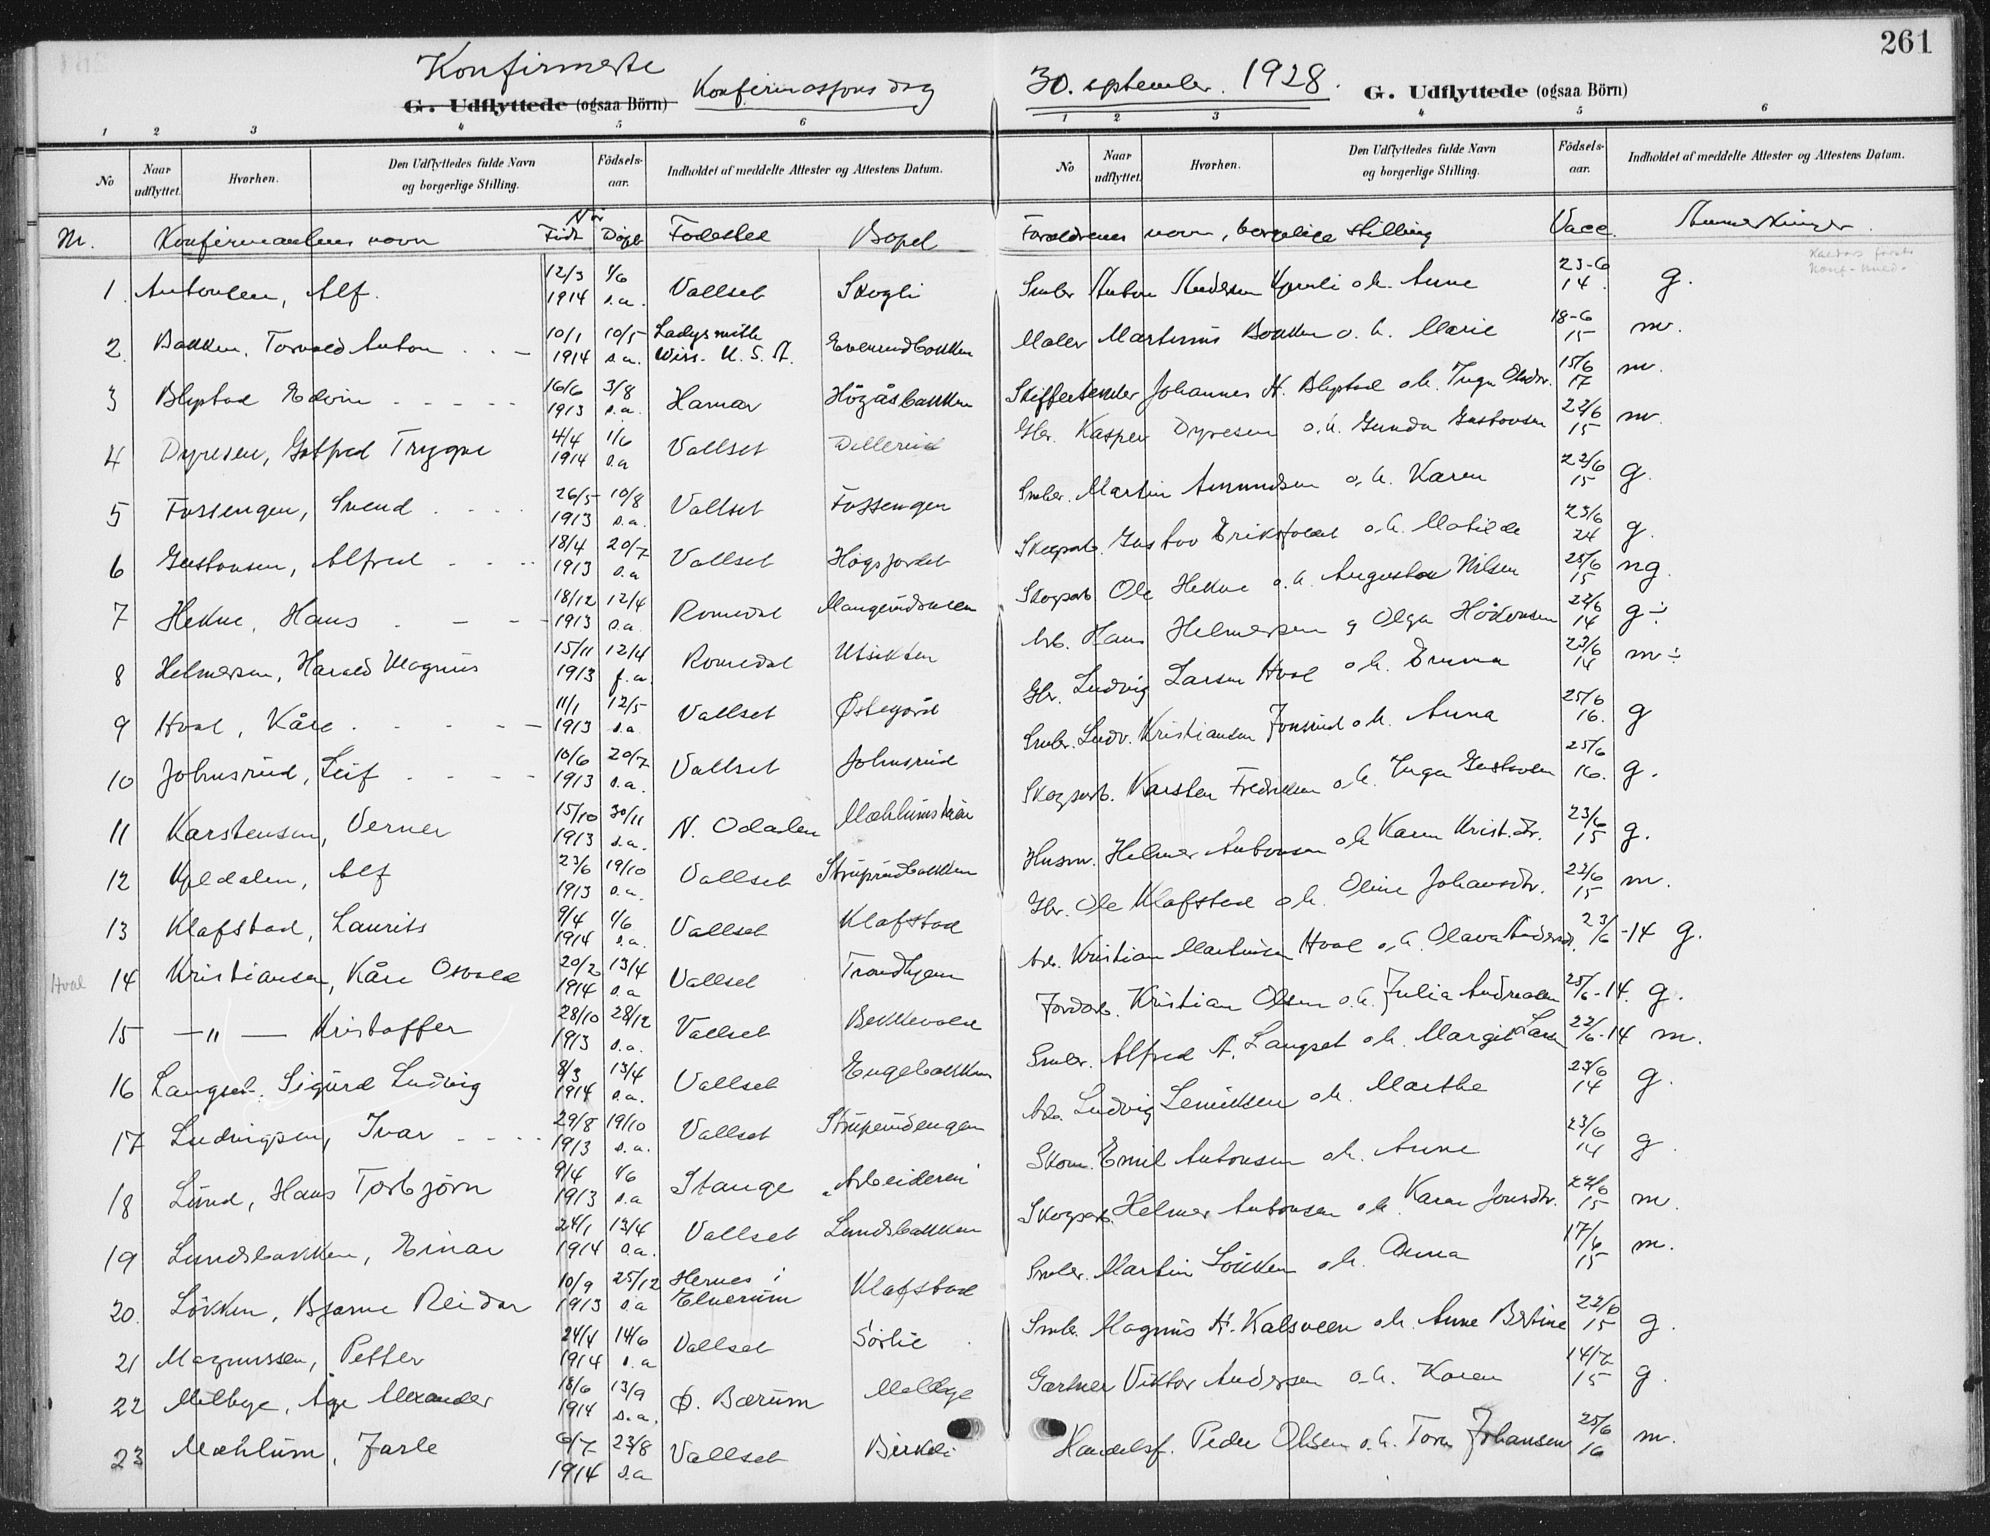 261
Konfirmerte
Konfirmasjonsdag
30. september. 1928.
G. Udflyttede (ogsaa Börn)
G. Udflyttede (ogsaa Börn)
1 2 3 4 5 6
1 2 3 4 5 6
No Naar udflyttet. Hvorhen. Den Udflyttedes fulde Navn og borgerlige Stilling. Födsels-aar. Indholdet af meddelte Attester og Attestens Datum.
No Naar udflyttet. Hvorhen. Den Udflyttedes fulde Navn og borgerlige Stilling. Födsels-aar. Indholdet af meddelte Attester og Attestens Datum.
Nr. Konfirmantens navn Når Född Döpt Födested Bopel Foreldrenes navn, borgelige stilling Vacc. Anmerkninger
1. Antonsen, Alf. 12/3 1914 1/6 s.a. Vallset Skogli Smbr. Anton Andersen o. h. Anne 23-6 14 g.
2. Bakken, Torvald Anton 10/1 1914 10/5 s.a. Ladysmith Wiss. U.S.A. Evenrudbakken Maler Martinius Bakken o. h. Marie 18-6 15 m.
3 Blystad Edvin 16/6 1913 3/8 s.a. Hamar Högåsbakken Johannes H. Blystad o.h. Inga Olsdtr. 15/6 17 m.
4 Dyresen, Gotfred Trygve 4/4 1914 1/6 s.a Vallset Dellerud Gbr. Kasper Dyresen o.h. Gunda Gustavsen 22/6 15 m.
5 Fossengen, Svend 26/5 1913 10/8 s.a. Vallset Fossengen Smbr. Martin Amundsen o. h. Karen 22/6 15 g.
6 Gustavsen, Alfred 18/4 1913 20/7 s.a Vallset Högsjordet Skogsarb. Gustav o.h. Matilde 23/6 24 g.
7 Hekne, Hans 18/12 1913 12/4 s.a. Romedal Skogsarb. Ole Hekne o.h. Augusta Nilsen 25/6 15 ng.
8 Helmersen, Harald Magnus 15/11 1913 12/4 f.a. Romedal Utsikten Arb. Hans Helmersen g Olga Håkonsen 22/6 14 g÷
9 Hval, Kåre 11/1 1913 12/5 s.a. Vallset Østegård Gbr. Ludvig Larsen Hval o.h. Emma 23/6 14 m÷
10 Johnsrud, Leif 10/6 1913 20/7 s.a. Vallset Johnsrud Smbr. Ludv. Kristiansen Jonsrud o.h. Anna 25/6 16. g
11 Karstensen, Verner 15/10 1913 30/11 s.a. N. Odalen Skogsarb. Karsten Fredriksen o.h. Inga Gustavsen 25/6 16. g.
12 Kjeldalen, Alf 23/6 1913 19/10 s.a. Vallset Struprudbakken Husm. Helmer Antonsen o.h. Karen Krist.dtr. 23/6 15 g.
13 Klafstad, Laurits 9/4 1914 1/6 s.a. Vallset Klafstad Gbr. Ole Klafstad o.h. Oline Johansdtr. 22/6 15 m.
Hval 14 Kristiansen, Kåre Osvald 20/2 1914 13/4 s.a Vallset Trondhjem Arb. Kristian Martinsen Hval o.h. Olava 23/6-14 g.
15 -"- Kristoffer 28/10 1913 28/12 s.a. Vallset Bekkevold Jordarb. Kristian Olsen o.h. Julia Andreasen 25/6-14. g.
16 Langset. Sigurd Ludvig 8/3 1914 13/4 s.a. Vallset Engebakken Smbr. Alfred A. Langset o.h. Margit 22/6-14 m.
17 Ludvigsen, Ivar 29/8 1913 19/10 s.a. Vallset Struprudengen Arb. Ludvig o.h. Marthe 23/6 14 g.
18 Lund, Hans Torbjörn 9/4 1913 1/6 s.a Stange "Arbeideren" Skom. Emil Antonsen o.h. Anne 23/6 14 g.
19 Lundsbakken, Einar 24/1 1914 13/4 s.a. Vallset Lundsbakken Skogsarb. Helmer Antonsen o.h. Karen Jonsdtr. 22/6 15 m.
20. Lökken, Bjarne Reidar 10/9 1913 25/12 s.a Hernes i Elverum Klafstad Smbr. Martin Lökken o.h. Anna 17/6 15 m.
21 Magnussen, Petter 24/4 1914 14/6 s.a Vallset Sörlie Smbr. Magnus H. Kalsveen o.h. Anne Bertine 22/6 15 g.
22 Melbye, Åge Alexander 18/6 1914 13/9 s.a. Ø. Bærum Melbye Gartner Viktor Andersen o.h. Karen 15 g.
23 Mæhlum, Jarle 6/7 1914 23/8 s.a Vallset Birkeli Handelsf. Peder Olsen o.h. Tora Johansen 25/6 16 m.